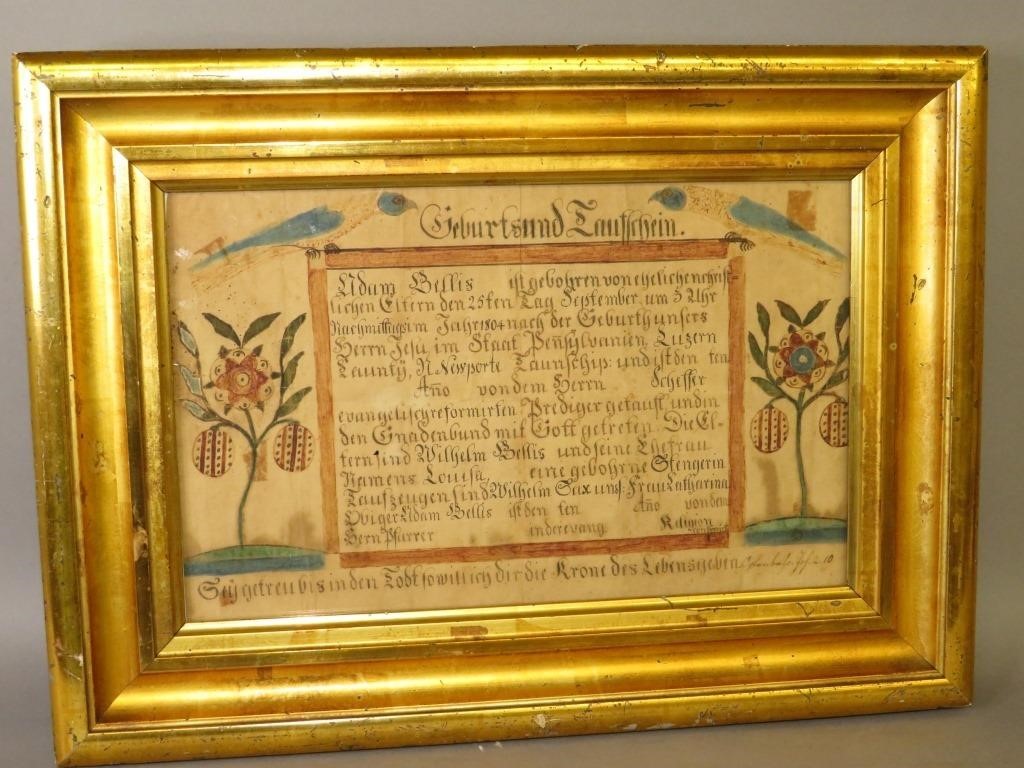 Geburts und Taufschein.
Adam Bellis ist gebohren von ehelichen christ-
lichen Eltern den 25ten Tag September, um 3 Uhr
Nachmittags im Jahr 1804 nach der Geburth unsers
Herrn Jesu, im Staat Pennsylvanien, Luzern
Caunty, N. Newporte Taunschip: und ist den ten
Año von dem Herrn Scheffer
evangelischreformirten Prediger getauft, und in
den Gnadenbund mit Gott getreten. Die El-
tern sind Wilhelm Bellis und seine Ehefrau
Namens Louisa, eine gebohrne Stengerin
Taufzeugen sind Wilhelm Sax uns: Frau Catharina
Obiger Adam Bellis ist den ten Año von dem
Hern Pfarrer in der evang. Religion
Sey getreu bis in den Todt so will ich dir die Krone des Lebens geben 10